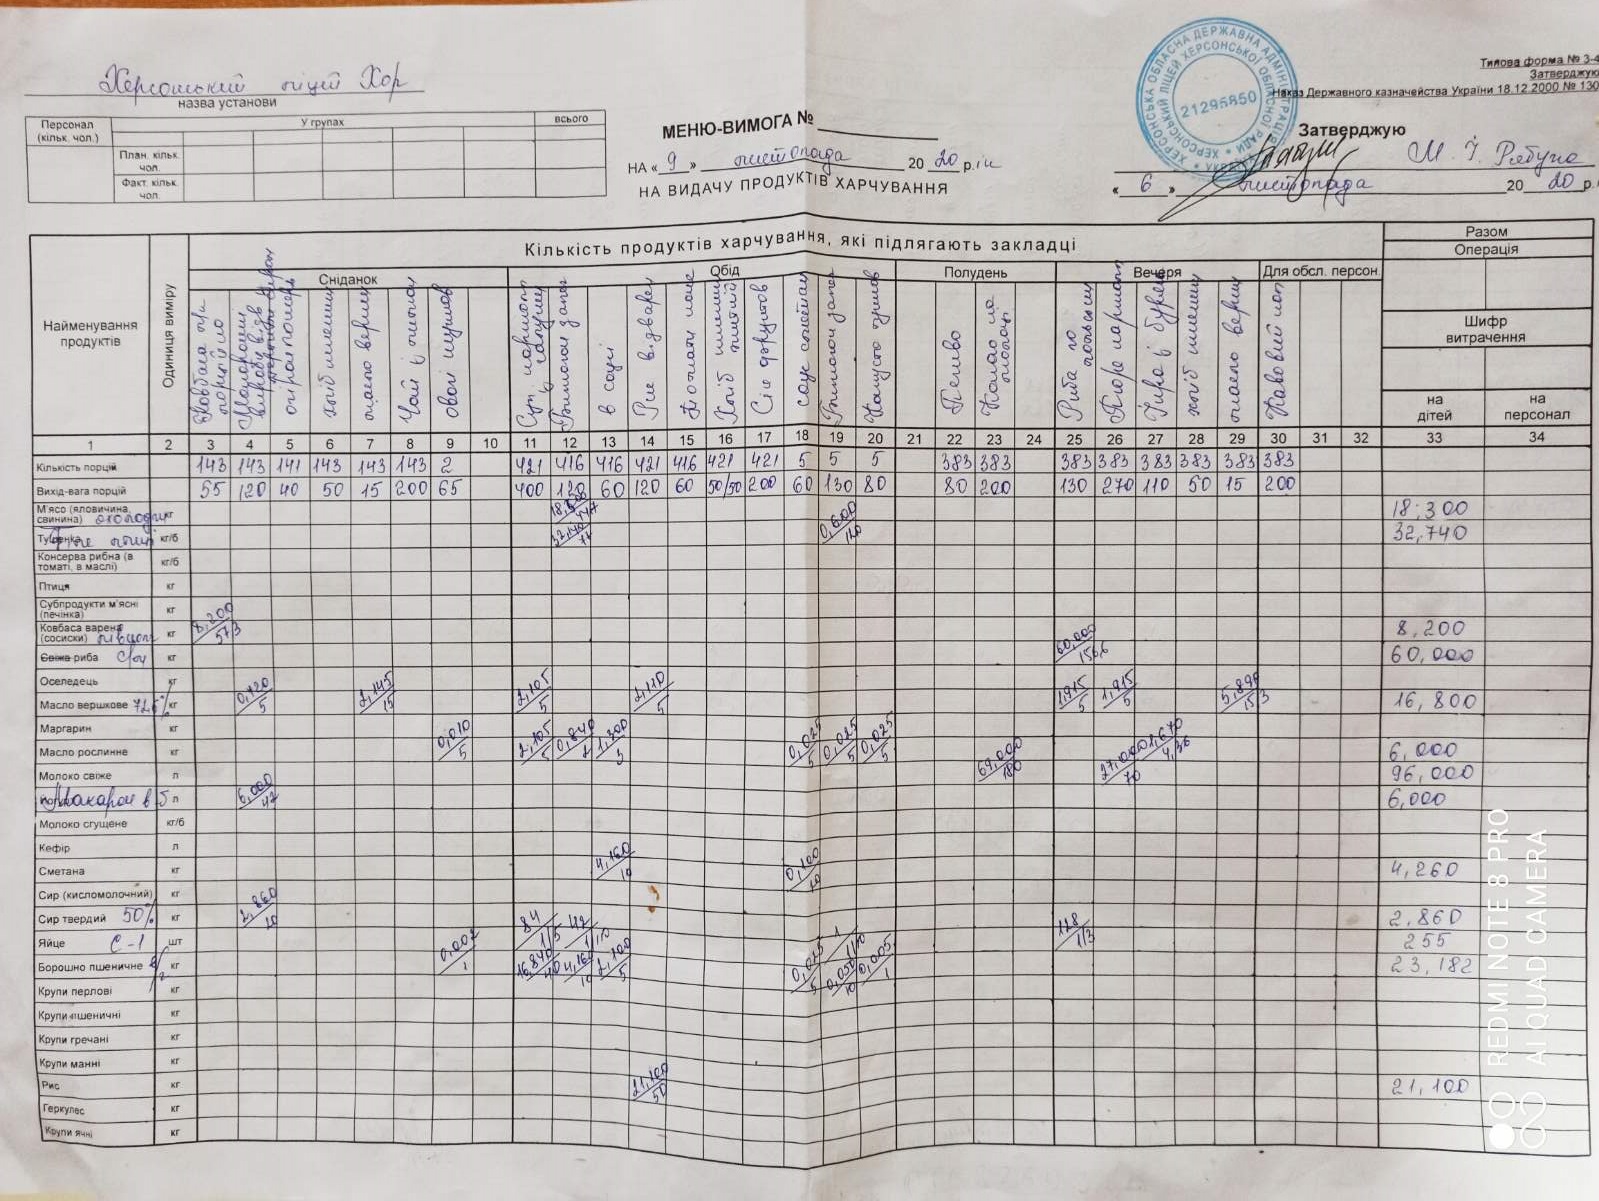 Херсонський ліцей Хор
назва установи
Персонал (кільк. чол.)
У групах
всього
План. кільк. чол.
Факт. кільк. чол.
МЕНЮ-ВИМОГА №
НА « 9 » листопада 20 20 р.
НА ВИДАЧУ ПРОДУКТІВ ХАРЧУВАННЯ
21295850
Типова форма № З-4
Затверджую
Наказ Державного казначейства України 18.12.2000 № 130
Затверджую
М. І. Рябуха
« 6 » листопада 20 20 р.
Найменування продуктів
Одиниця виміру
Кількість продуктів харчування, які підлягають закладці
Разом
Операція
Сніданок
Обід
Полудень
Вечеря
Для обсл. персон.
Шифр витрачення
на дітей
на персонал
хліб пшенич
масло верш
Чай з лимоном
овочі тушков
в соусі
Рис відварен
Хліб пшенич житній
Сік фруктов
Капуста тушков
Печиво
Какао на молоці
Риба по польськи
Пюре картопл
хліб пшенич
масло верш
Кавовий нап
1 2 3 4 5 6 7 8 9 10 11 12 13 14 15 16 17 18 19 20 21 22 23 24 25 26 27 28 29 30 31 32 33 34
Кількість порцій 143 143 141 143 143 143 2 421 416 416 421 416 421 421 5 5 5 383 383 383 383 383 383 383 383
Вихід-вага порцій 55 120 40 50 15 200 65 400 120 60 120 60 50/50 200 60 130 80 80 200 130 270 110 50 15 200
М'ясо (яловичина, свинина) кг 18,300
Тушенка кг/б 32,740/77 0,600/120 32,740
Консерва рибна (в томаті, в маслі) кг/б
Птиця кг
Субпродукти м'ясні (печінка) кг
Ковбаса варена (сосиски) кг 8,200/573 8,200
Свіжа риба кг 60,000/156,6 60,000
Оселедець кг
Масло вершкове 72,5% кг 0,720/5 2,145/15 2,105/5 2,110/5 1,915/5 1,915/5 5,890/15,3 16,800
Маргарин кг
Масло рослинне кг 0,010/5 2,105/5 0,840/2 1,300/3 0,025/5 0,025/5 0,025/5 6,000
Молоко свіже л 69,000/180 27,000/70 96,000
Макарон в 5 л 6,000/42 6,000
Молоко сгущене кг/б
Кефір л
Сметана кг 4,160/10 0,100/20 4,260
Сир (кисломолочний) кг
Сир твердий 50% кг 2,860/20 2,860
Яйце С-1 шт 84/1/5 42/1/10 1 1/10 128/1/3 255
Борошно пшеничне в/г кг 0,002/1 16,840/40 4,160/10 2,100/5 0,025/5 0,050/10 0,005/1 23,182
Крупи перлові кг
Крупи пшеничні кг
Крупи гречані кг
Крупи манні кг
Рис кг 21,100/50 21,100
Геркулес кг
Крупи ячні кг
REDMI NOTE 8 PRO
AI QUAD CAMERA